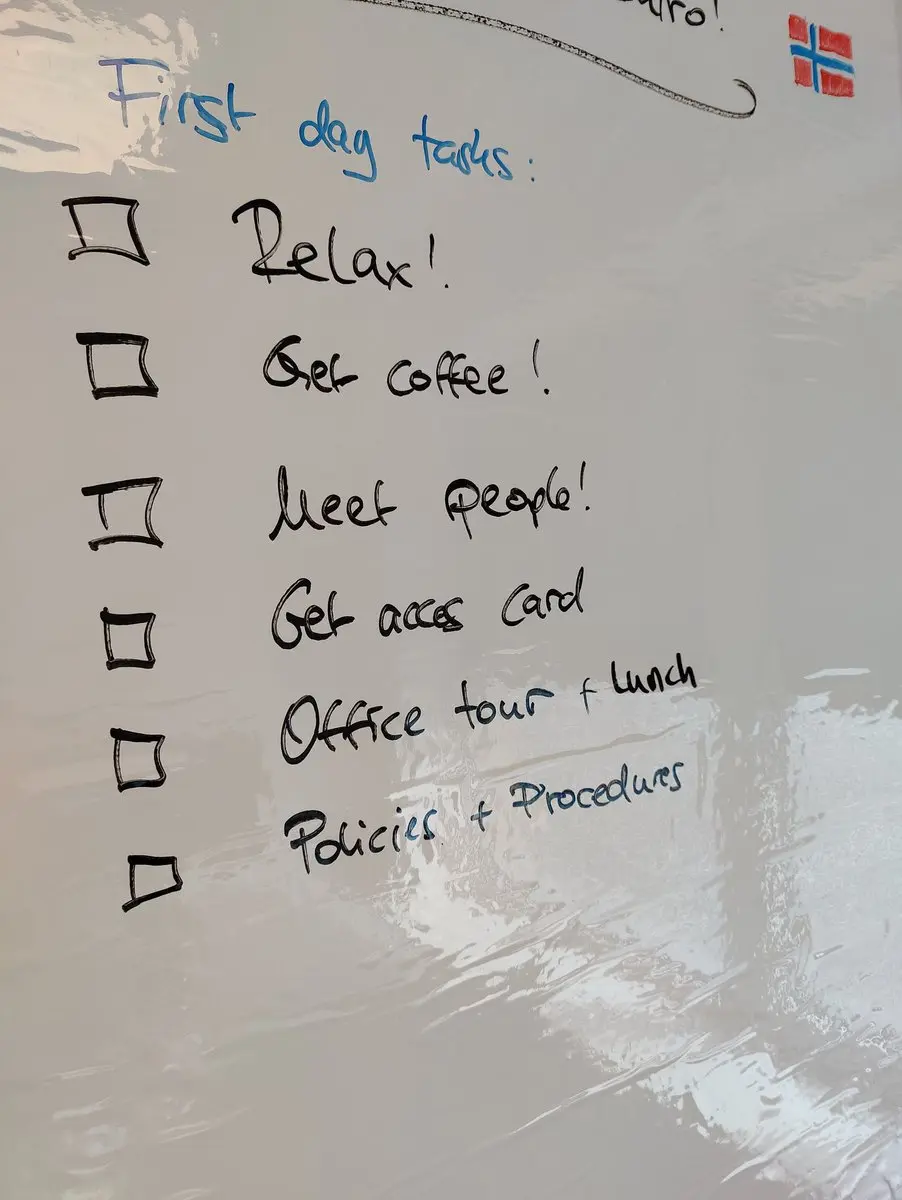 First day tasks:
Relax!
Get coffee!
Meet people!
Get acces card
Office tour + Lunch
Policies + Procedures